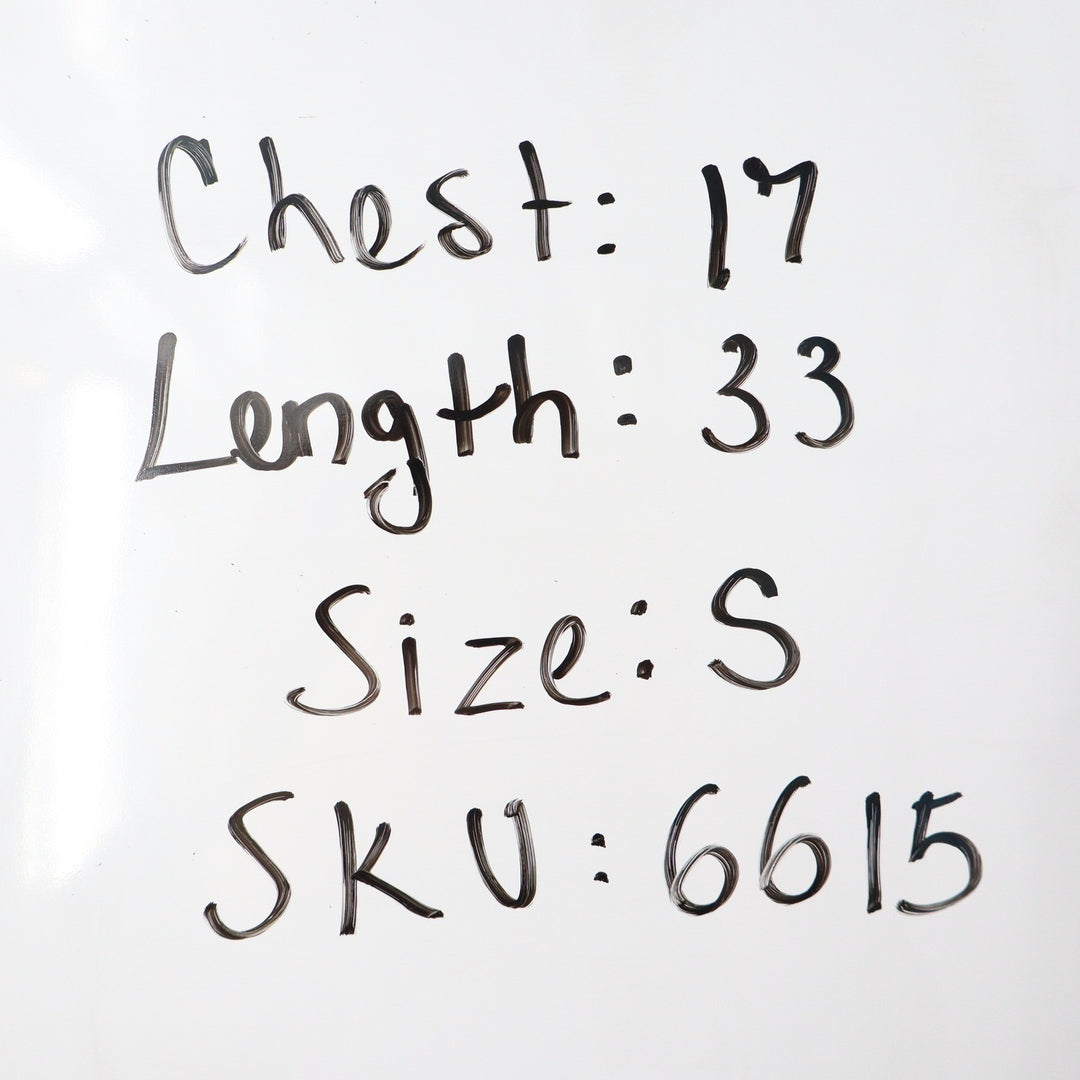 Chest: 17
Length: 33
Size: S
SKU: 6615